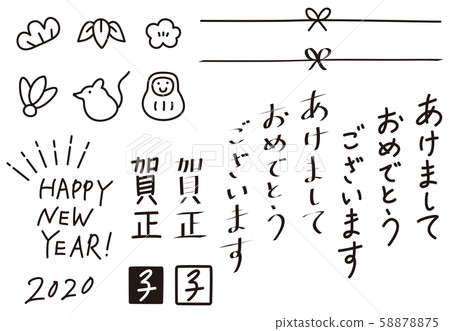 あけまして
おめでとう
ございます
あけまして
おめでとう
ございます
賀正
賀正
子
子
HAPPY
NEW
YEAR!
2020
PIXTA
58878875